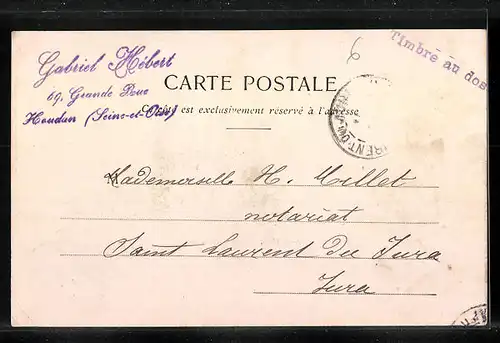 Gabriel Hébert
69, Grande Rue
Houdan (Seine-et-Oise)
Timbre au dos
6
CARTE POSTALE
est exclusivement réservé à l'adresse
Mademoiselle H. Millet
notariat
Saint Laurent du Jura
Jura